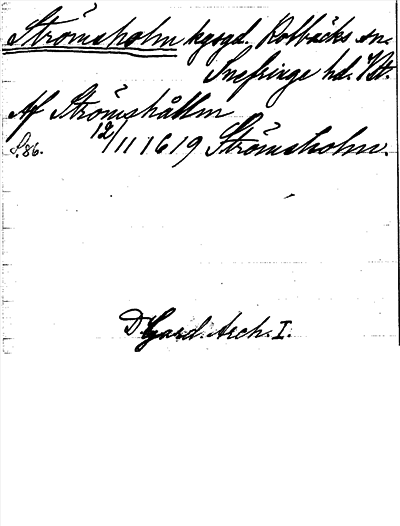 Strömsholm kgsgd. Kolbäcks sn.
Snefringe hd. Vstm.
Af Strömshållm
S. 86. 12/11 1619 Strömsholm.
D Gard. Arch. I.